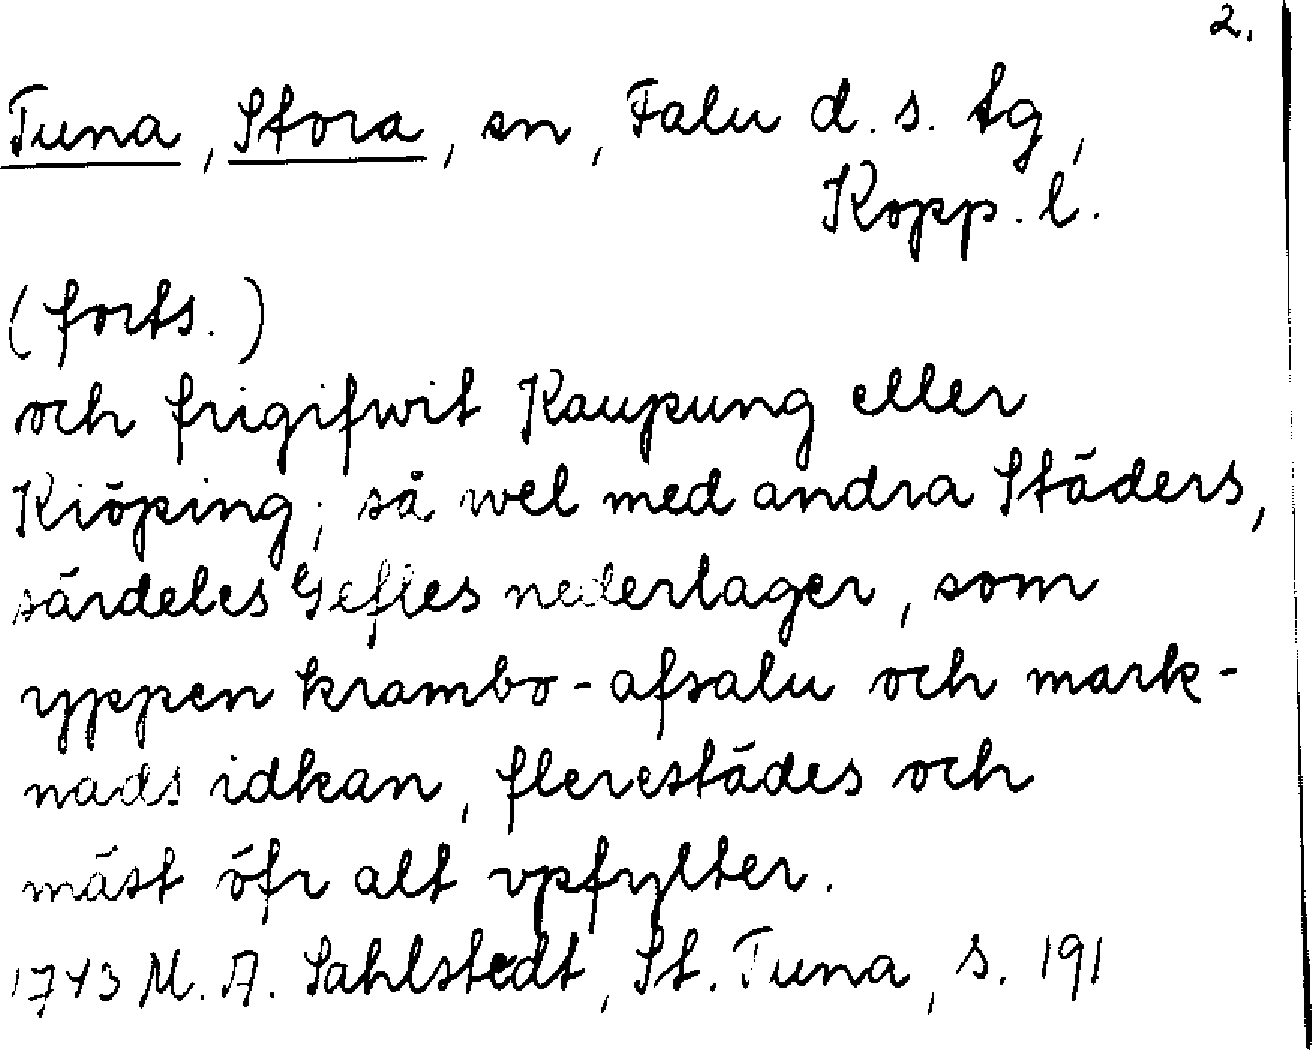 2.
Tuna, Stora, sn, Falu d. s. tg,
Kopp. l.
(forts.)
och frigifwit Kaupung eller
Kiöping; så wel med andra Städers,
särdeles Gefles nederlager, som
yppen krambo-afsalu och mark-
nads idkan, flerestädes och
mäst öfr alt vpfylter.
1743 M. A. Sahlstedt, St. Tuna, s. 191